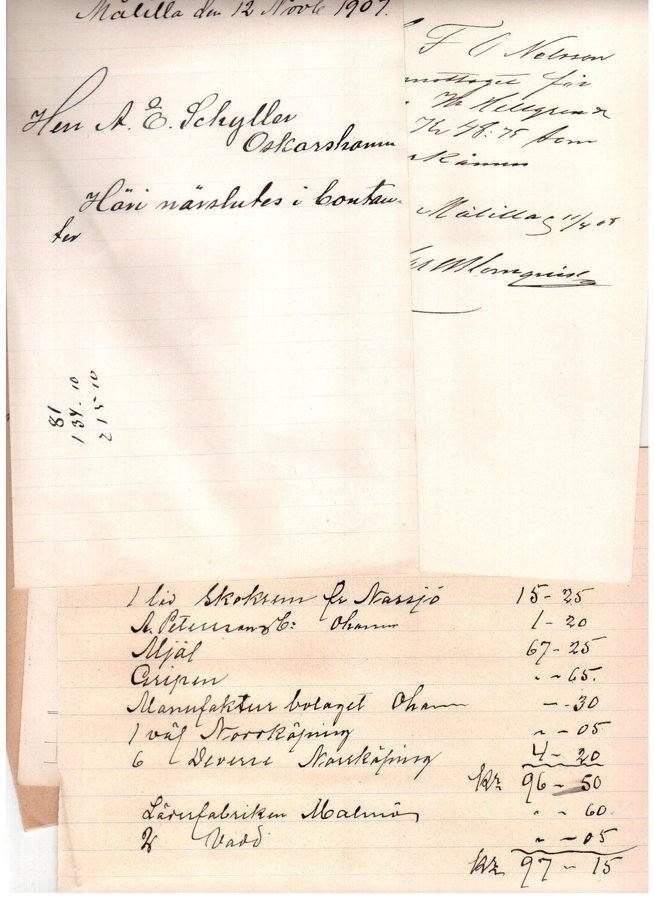 Målilla den 12 Novbr 1907.
Herr A. E. Schyller
Oskarshamn
Häri närslutes i Contan-
ter
81
134. 10
215 10
F O Nelsson
för
Kr 48:75 som
Målilla 11/4 08
Blomquist
1 låd Skokräm fr Nässjö 15-25
A. Peterson & C: Ohamn 1-20
Mjöl 67-25
Gripen " - 65.
Manufaktur bolaget Ohamn — -30
1 väf Norrköping " - 05
6 Deverse Norrköping 4-20
Kr. 96-50
Läderfabriken Malmö " - 60
Vadd " - 05
Kr. 97-15